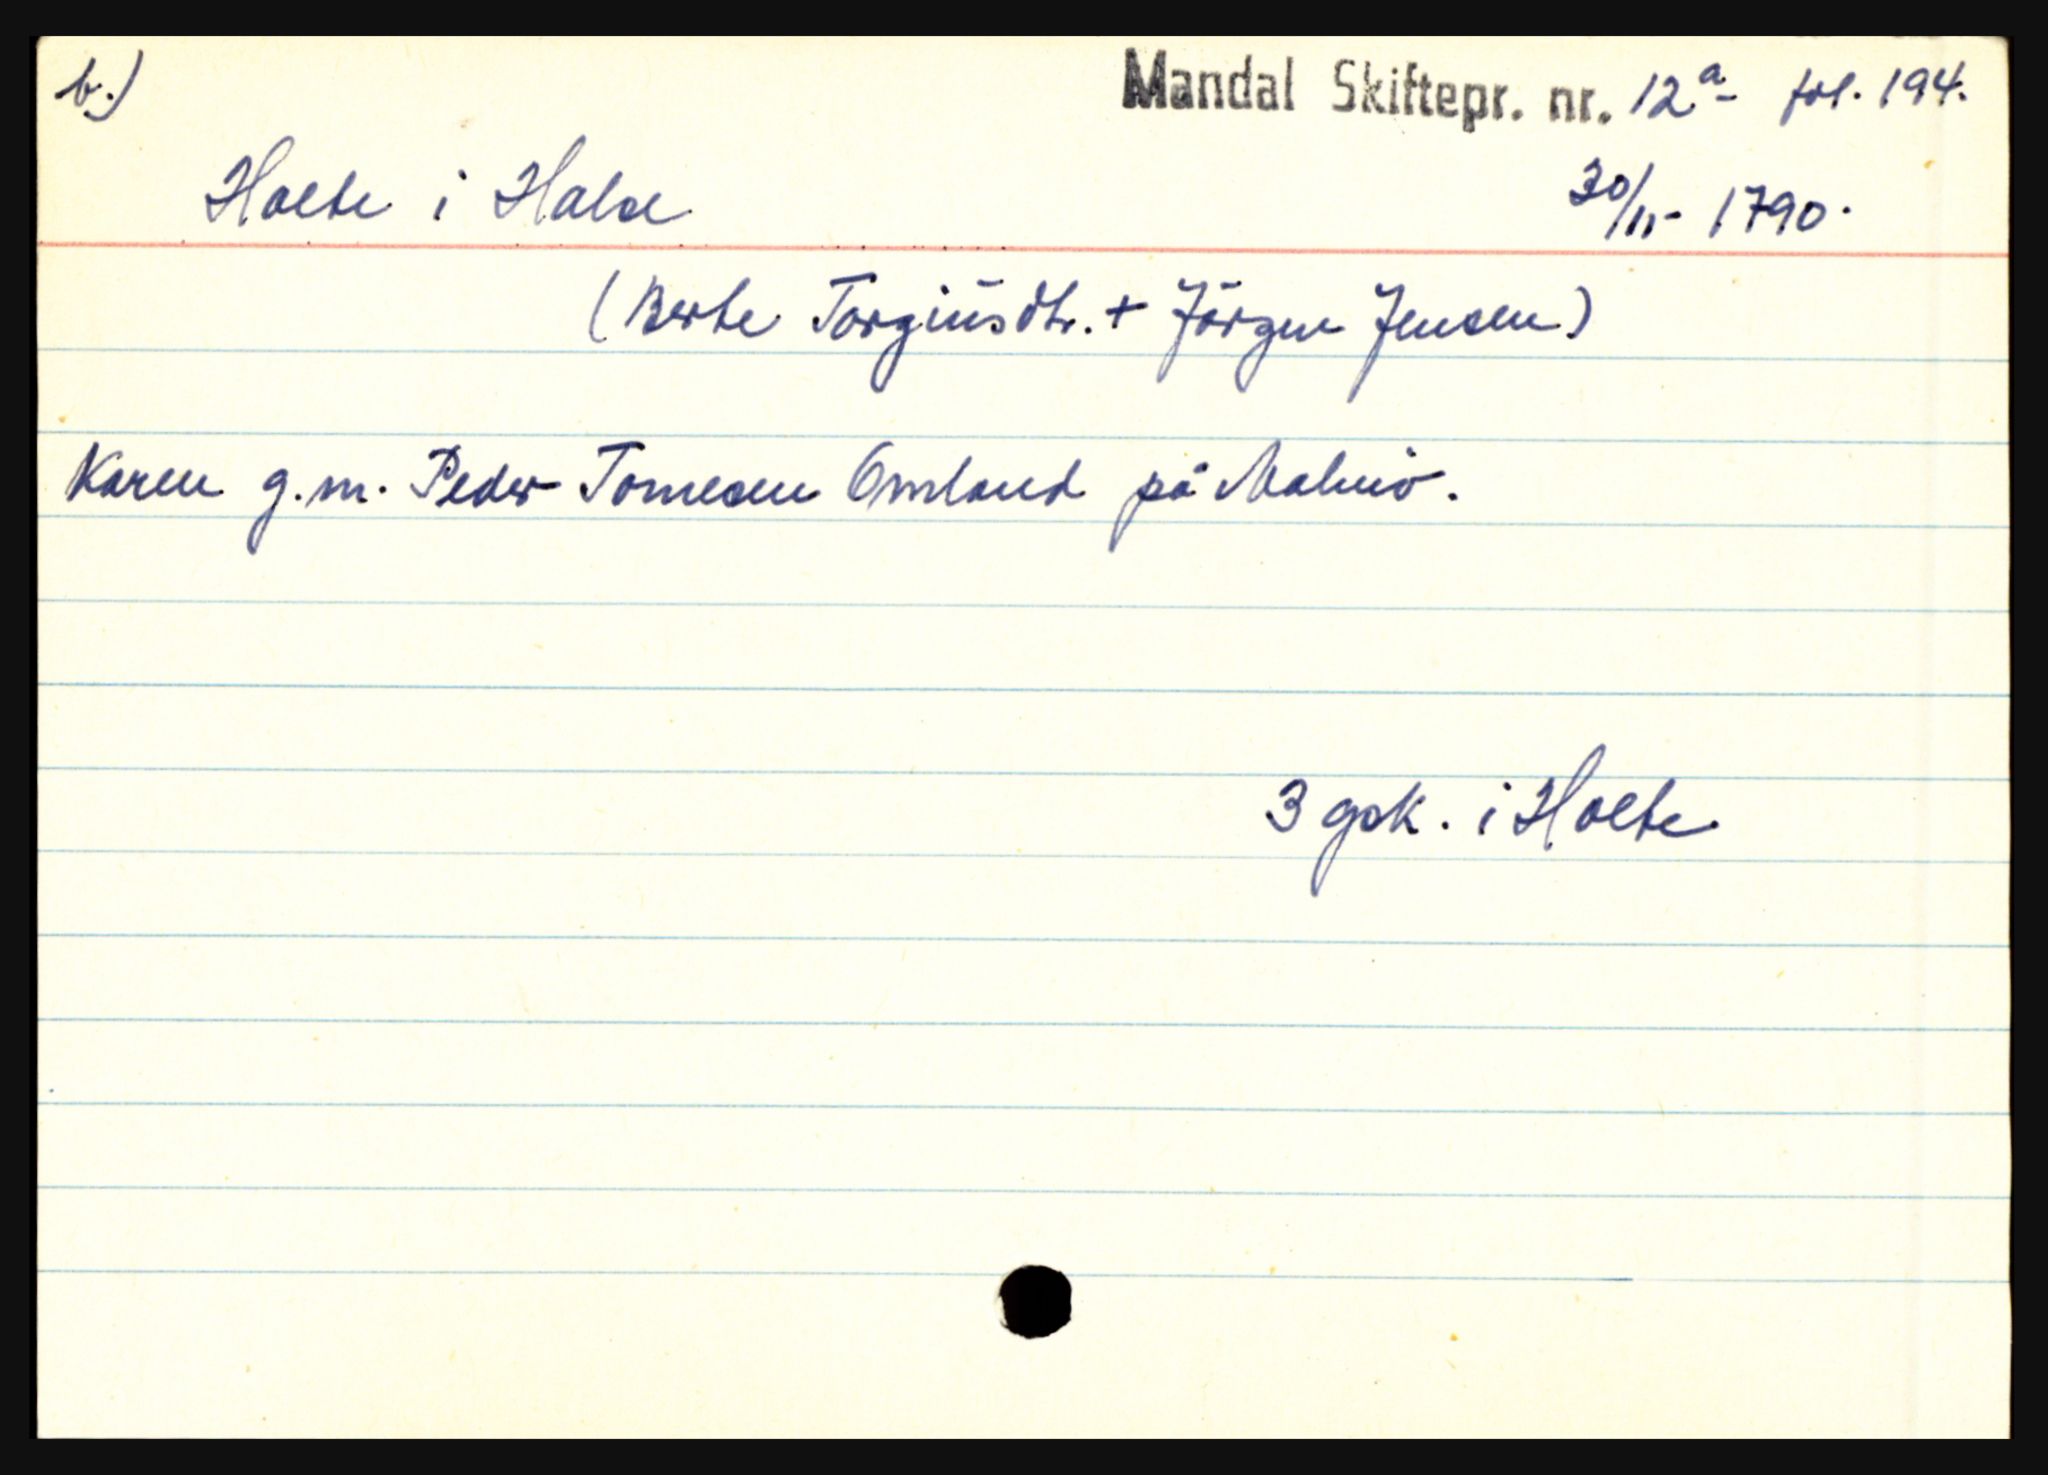 b.) Mandal Skiftepr. nr. 12a- fol. 194.
Holte i Halse 30/11- 1790.
(Berte Torgiusdtr. + Jörgen Jensen)
Karen g.m. Peder Tomesen Omland på Malmö.
3 gsk. i Holte